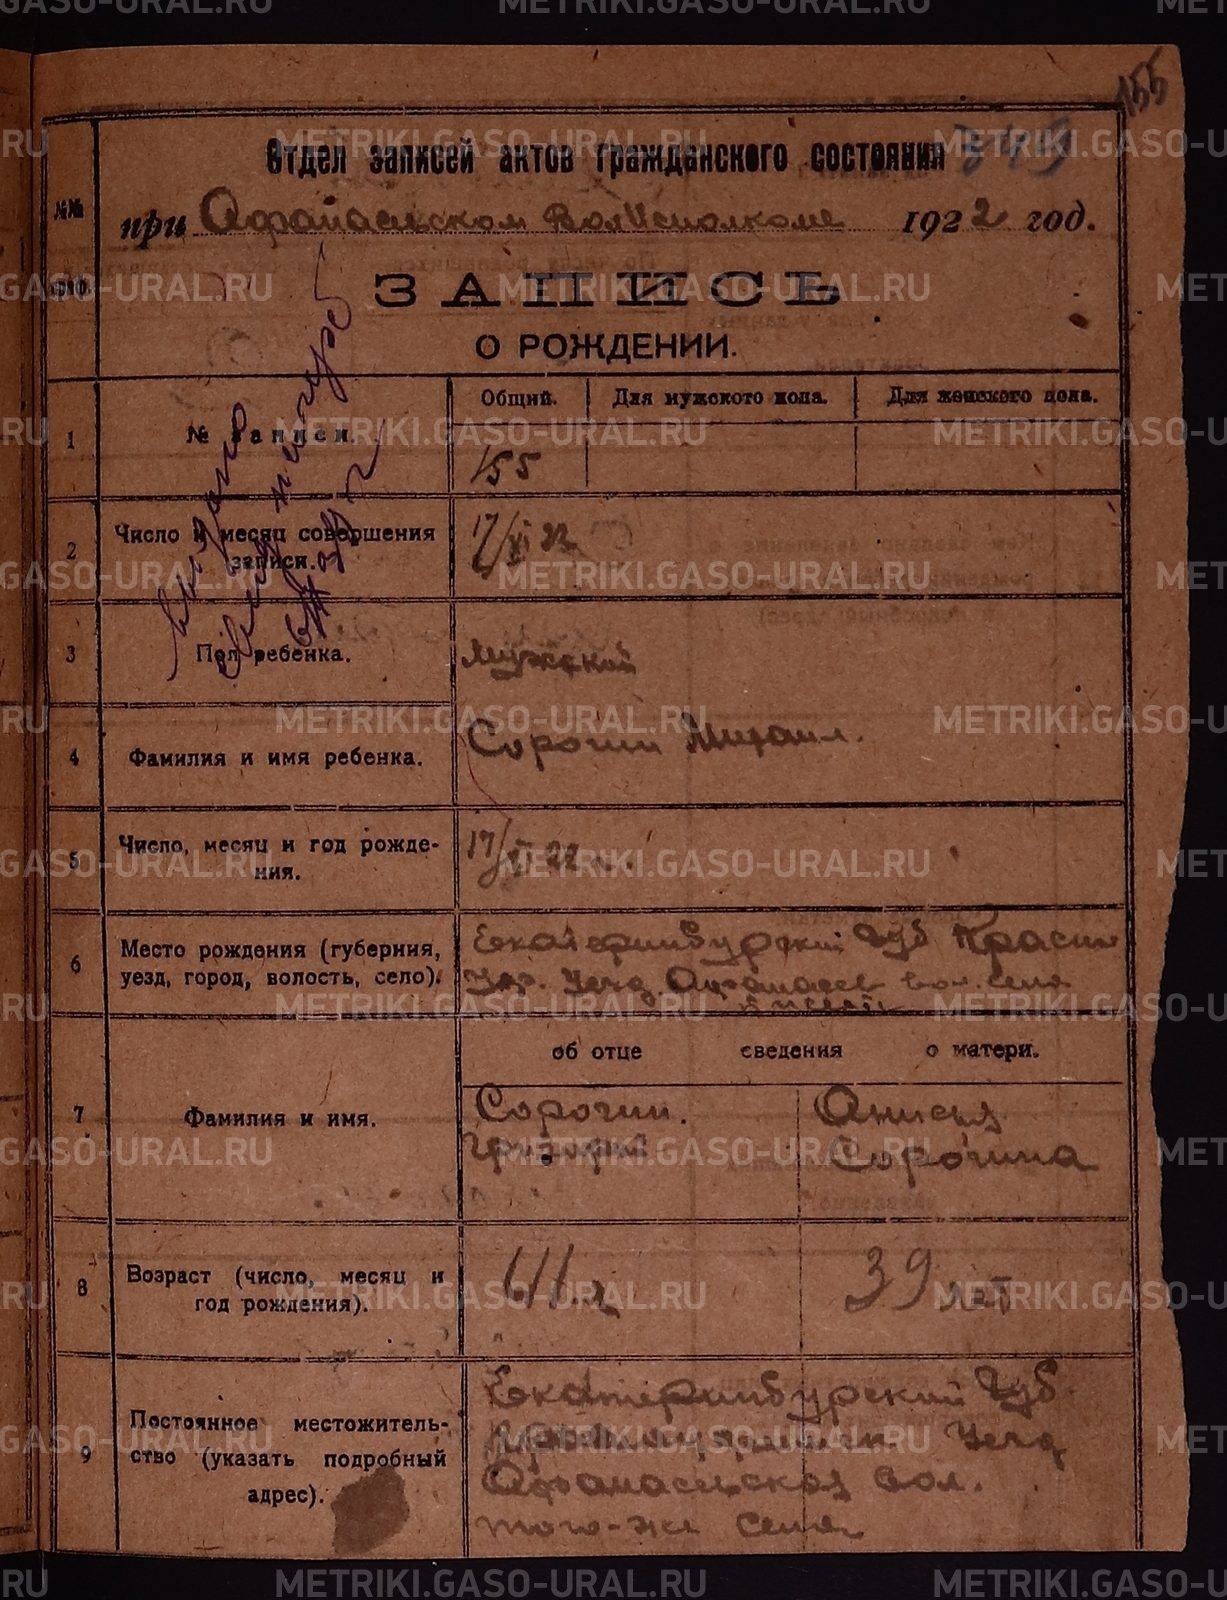 155
349
Отдел записей актов гражданского состояния
при Афанасьевском ВолИсполкоме 1922 год.
№№
граф.
ЗАПИСЬ
О РОЖДЕНИИ.
Общий. Для мужского пола. Для женского пола.
1 № записи. 155
2 Число и месяц совершения записи. 17/XI 22
3 Пол ребенка. Мужской
4 Фамилия и имя ребенка. Сорогин Михаил.
5 Число, месяц и год рожде-
ния. 17/XI 22 г.
6 Место рождения (губерния,
уезд, город, волость, село). Екатеринбургский Губ Красно
Уф. Уезд Афанасьев вол. села
об отце сведения о матери.
7 Фамилия и имя. Сорогин. Анисья
Григорий Сорогина
8 Возраст (число, месяц и
год рождения). 39 лет
9 Постоянное местожитель-
ство (указать подробный
адрес). Екатеринбургский Губ.
Уезд
Афанасьевская вол.
того-же села
METRIKI.GASO-URAL.RU